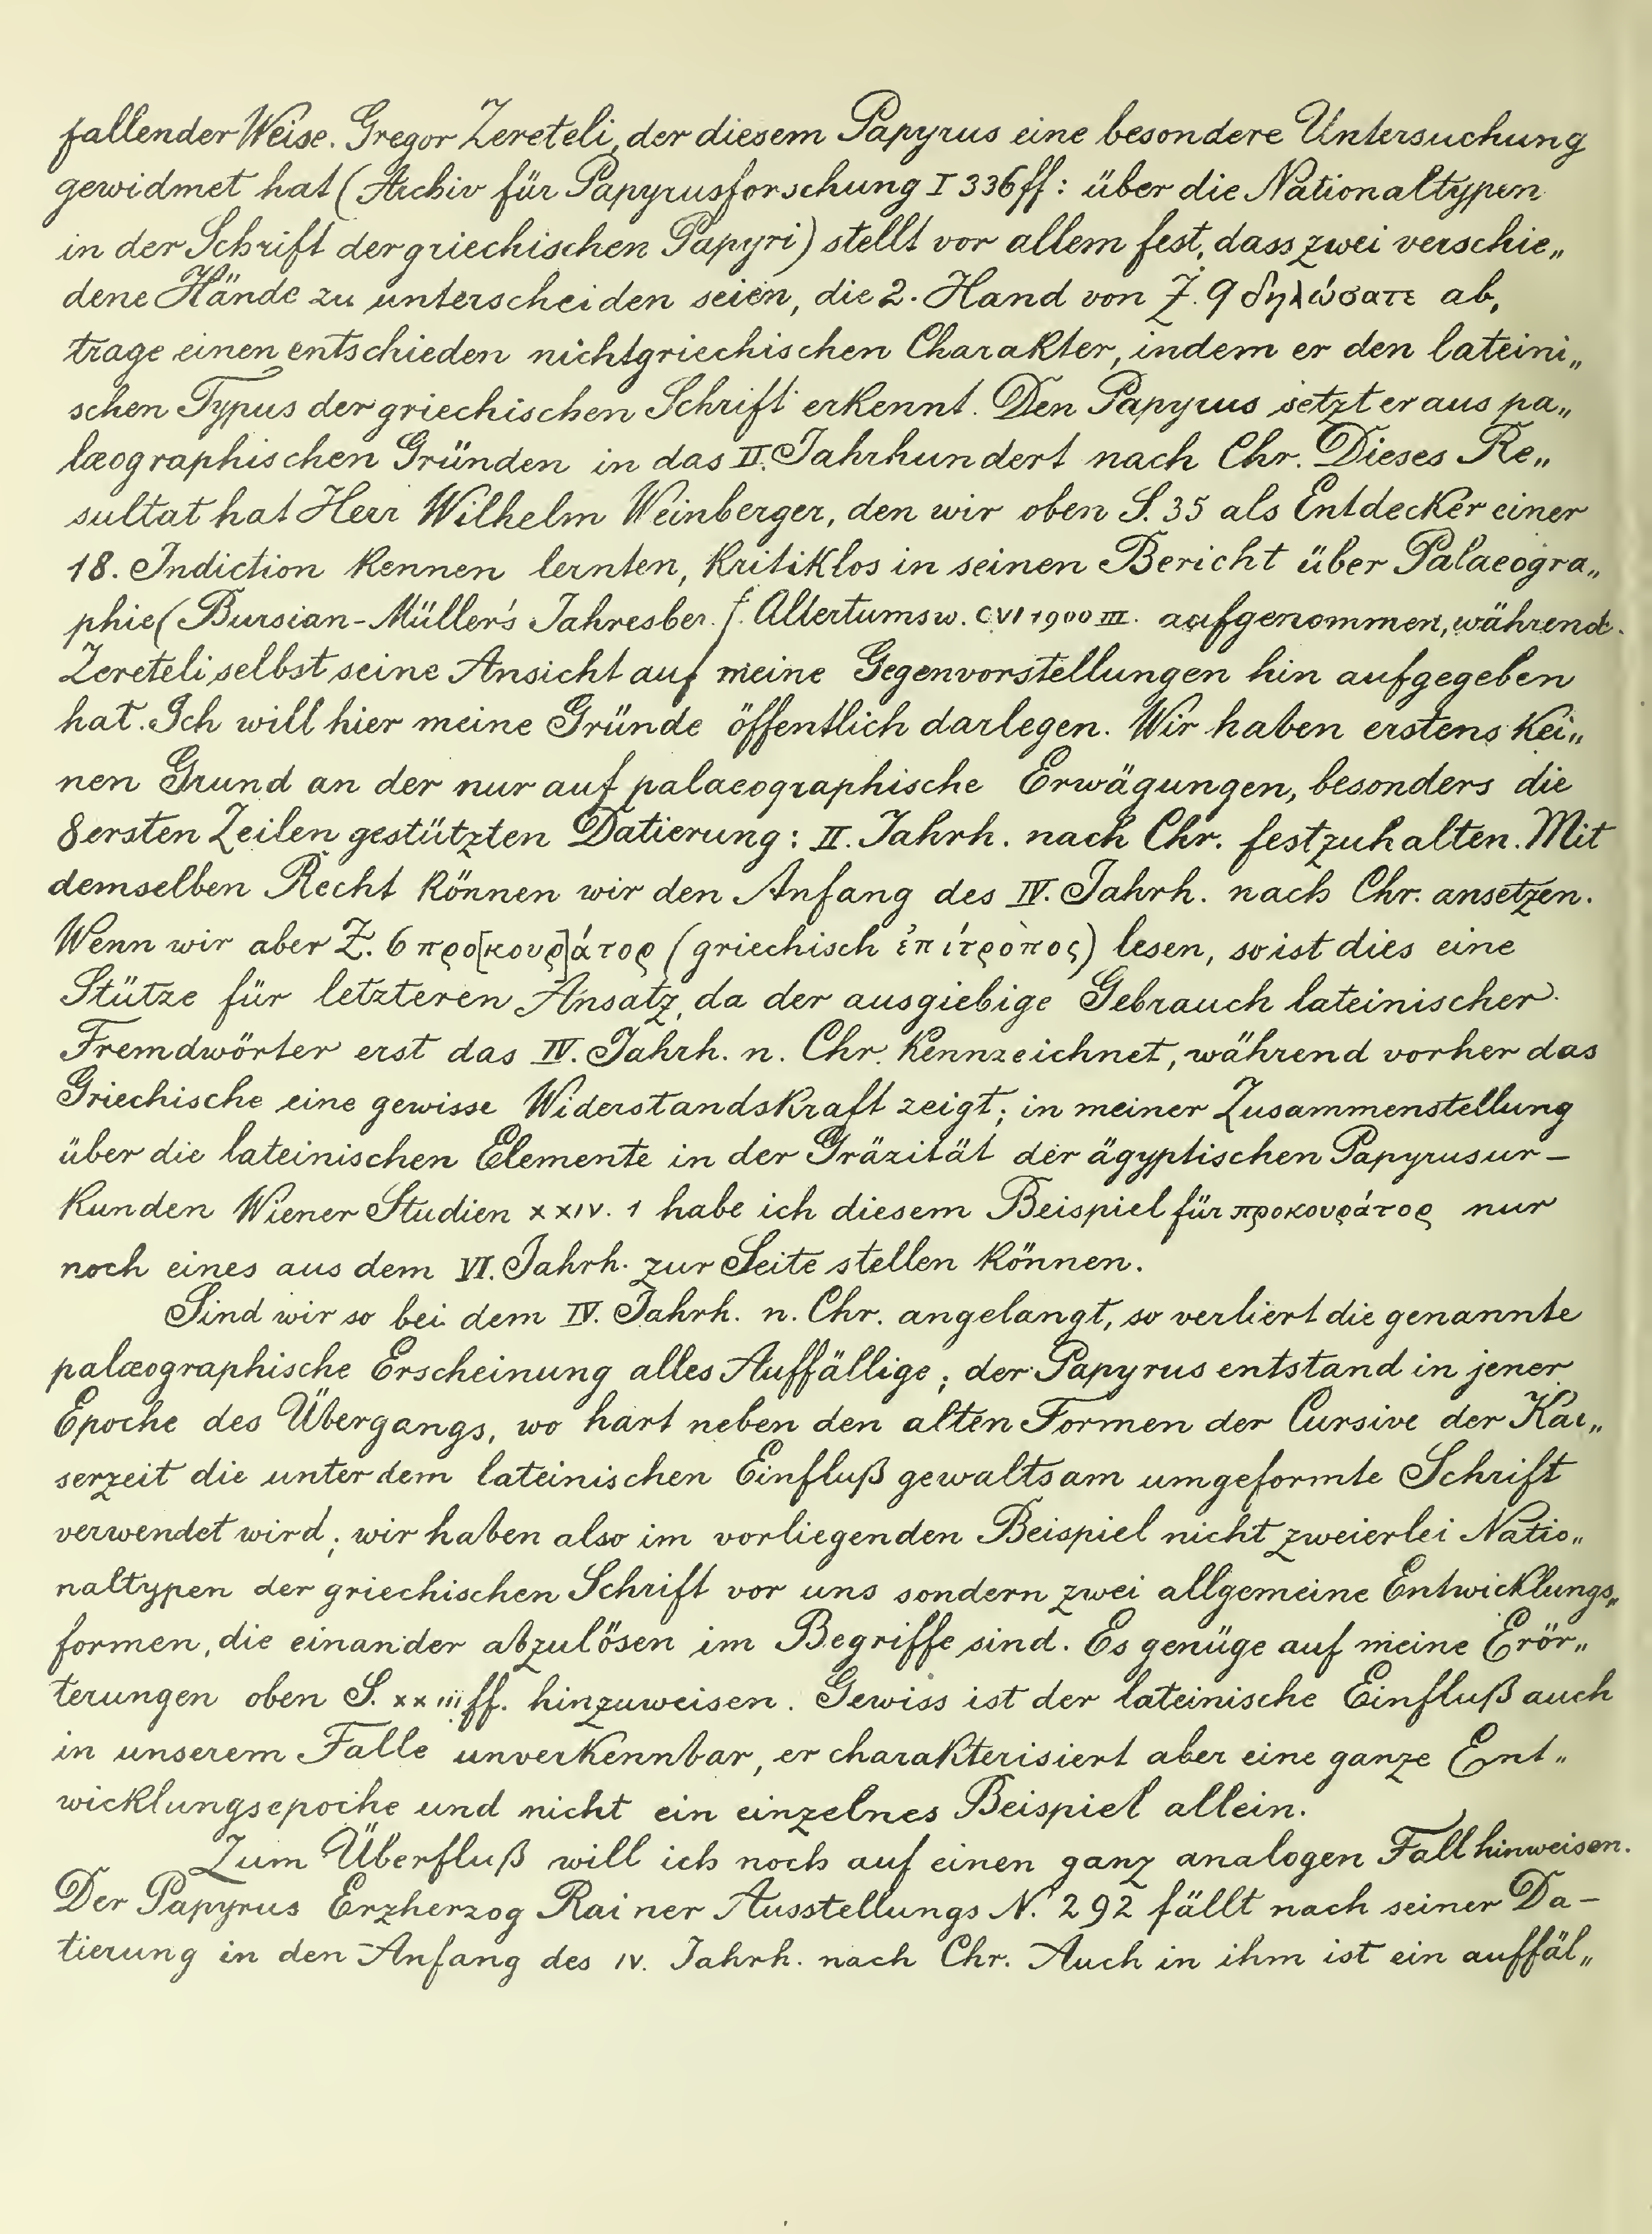 fallender Weise. Gregor Zereteli, der diesem Papyrus eine besondere Untersuchung
gewidmet hat (Archiv für Papyrusforschung I 336 ff: über die Nationaltypen
in der Schrift der griechischen Papyri) stellt vor allem fest, dass zwei verschie„
dene Hände zu unterscheiden seien, die 2. Hand von Z. 9 δηλώσατε ab,
trage einen entschieden nichtgriechischen Charakter, indem er den lateini„
schen Typus der griechischen Schrift erkennt. Den Papyrus setzt er aus pa„
læographischen Gründen in das II. Jahrhundert nach Chr. Dieses Re„
sultat hat Herr Wilhelm Weinberger, den wir oben S. 35 als Entdecker einer
18. Indiction kennen lernten, kritiklos in seinen Bericht über Palaeogra„
phie (Bursian-Müller's Jahresber. f. Altertumsw. CVI 1900 III. aufgenommen, während
Zereteli selbst seine Ansicht auf meine Gegenvorstellungen hin aufgegeben
hat. Ich will hier meine Gründe öffentlich darlegen. Wir haben erstens kei„
nen Grund an der nur auf palaeographische Erwägungen, besonders die
8 ersten Zeilen gestützten Datierung: II. Jahrh. nach Chr. festzuhalten. Mit
demselben Recht können wir den Anfang des IV. Jahrh. nach Chr. ansetzen.
Wenn wir aber Z. 6 προ[κουρ]άτορ (griechisch ἐπίτροπος) lesen, so ist dies eine
Stütze für letzteren Ansatz, da der ausgiebige Gebrauch lateinischer
Fremdwörter erst das IV. Jahrh. n. Chr. kennzeichnet, während vorher das
Griechische eine gewisse Widerstandskraft zeigt; in meiner Zusammenstellung
über die lateinischen Elemente in der Gräzität der ägyptischen Papyrusur-
kunden Wiener Studien XXIV. 1 habe ich diesem Beispiel für προκουράτορ nur
noch eines aus dem VI. Jahrh. zur Seite stellen können.
Sind wir so bei dem IV. Jahrh. n. Chr. angelangt, so verliert die genannte
palæographische Erscheinung alles Auffällige; der Papyrus entstand in jener
Epoche des Übergangs, wo hart neben den alten Formen der Cursive der Kai„
serzeit die unter dem lateinischen Einfluß gewaltsam umgeformte Schrift
verwendet wird; wir haben also im vorliegenden Beispiel nicht zweierlei Natio„
naltypen der griechischen Schrift vor uns sondern zwei allgemeine Entwicklungs„
formen, die einander abzulösen im Begriffe sind. Es genüge auf meine Erör„
terungen oben S. XXIII ff. hinzuweisen. Gewiss ist der lateinische Einfluß auch
in unserem Falle unverkennbar, er charakterisiert aber eine ganze Ent„
wicklungsepoche und nicht ein einzelnes Beispiel allein.
Zum Überfluß will ich noch auf einen ganz analogen Fall hinweisen.
Der Papyrus Erzherzog Rainer Ausstellungs N. 292 fällt nach seiner Da-
tierung in den Anfang des IV. Jahrh. nach Chr. Auch in ihm ist ein auffäl„